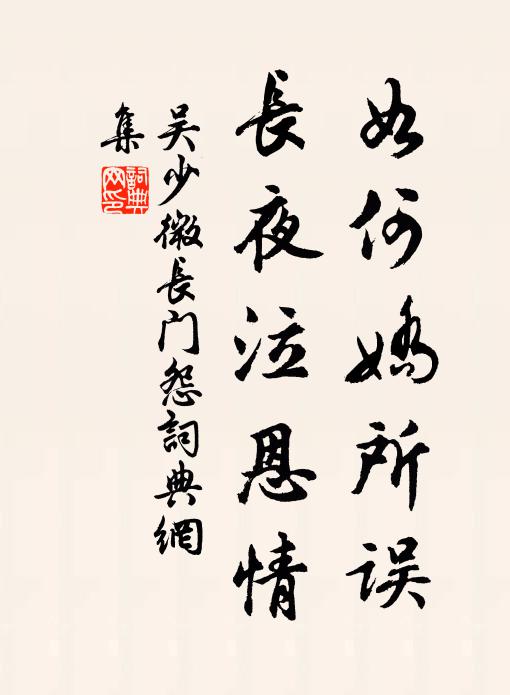 如何嬌所误
長夜泣恩情
吴少微長门怨詞典網
集
詞典网印